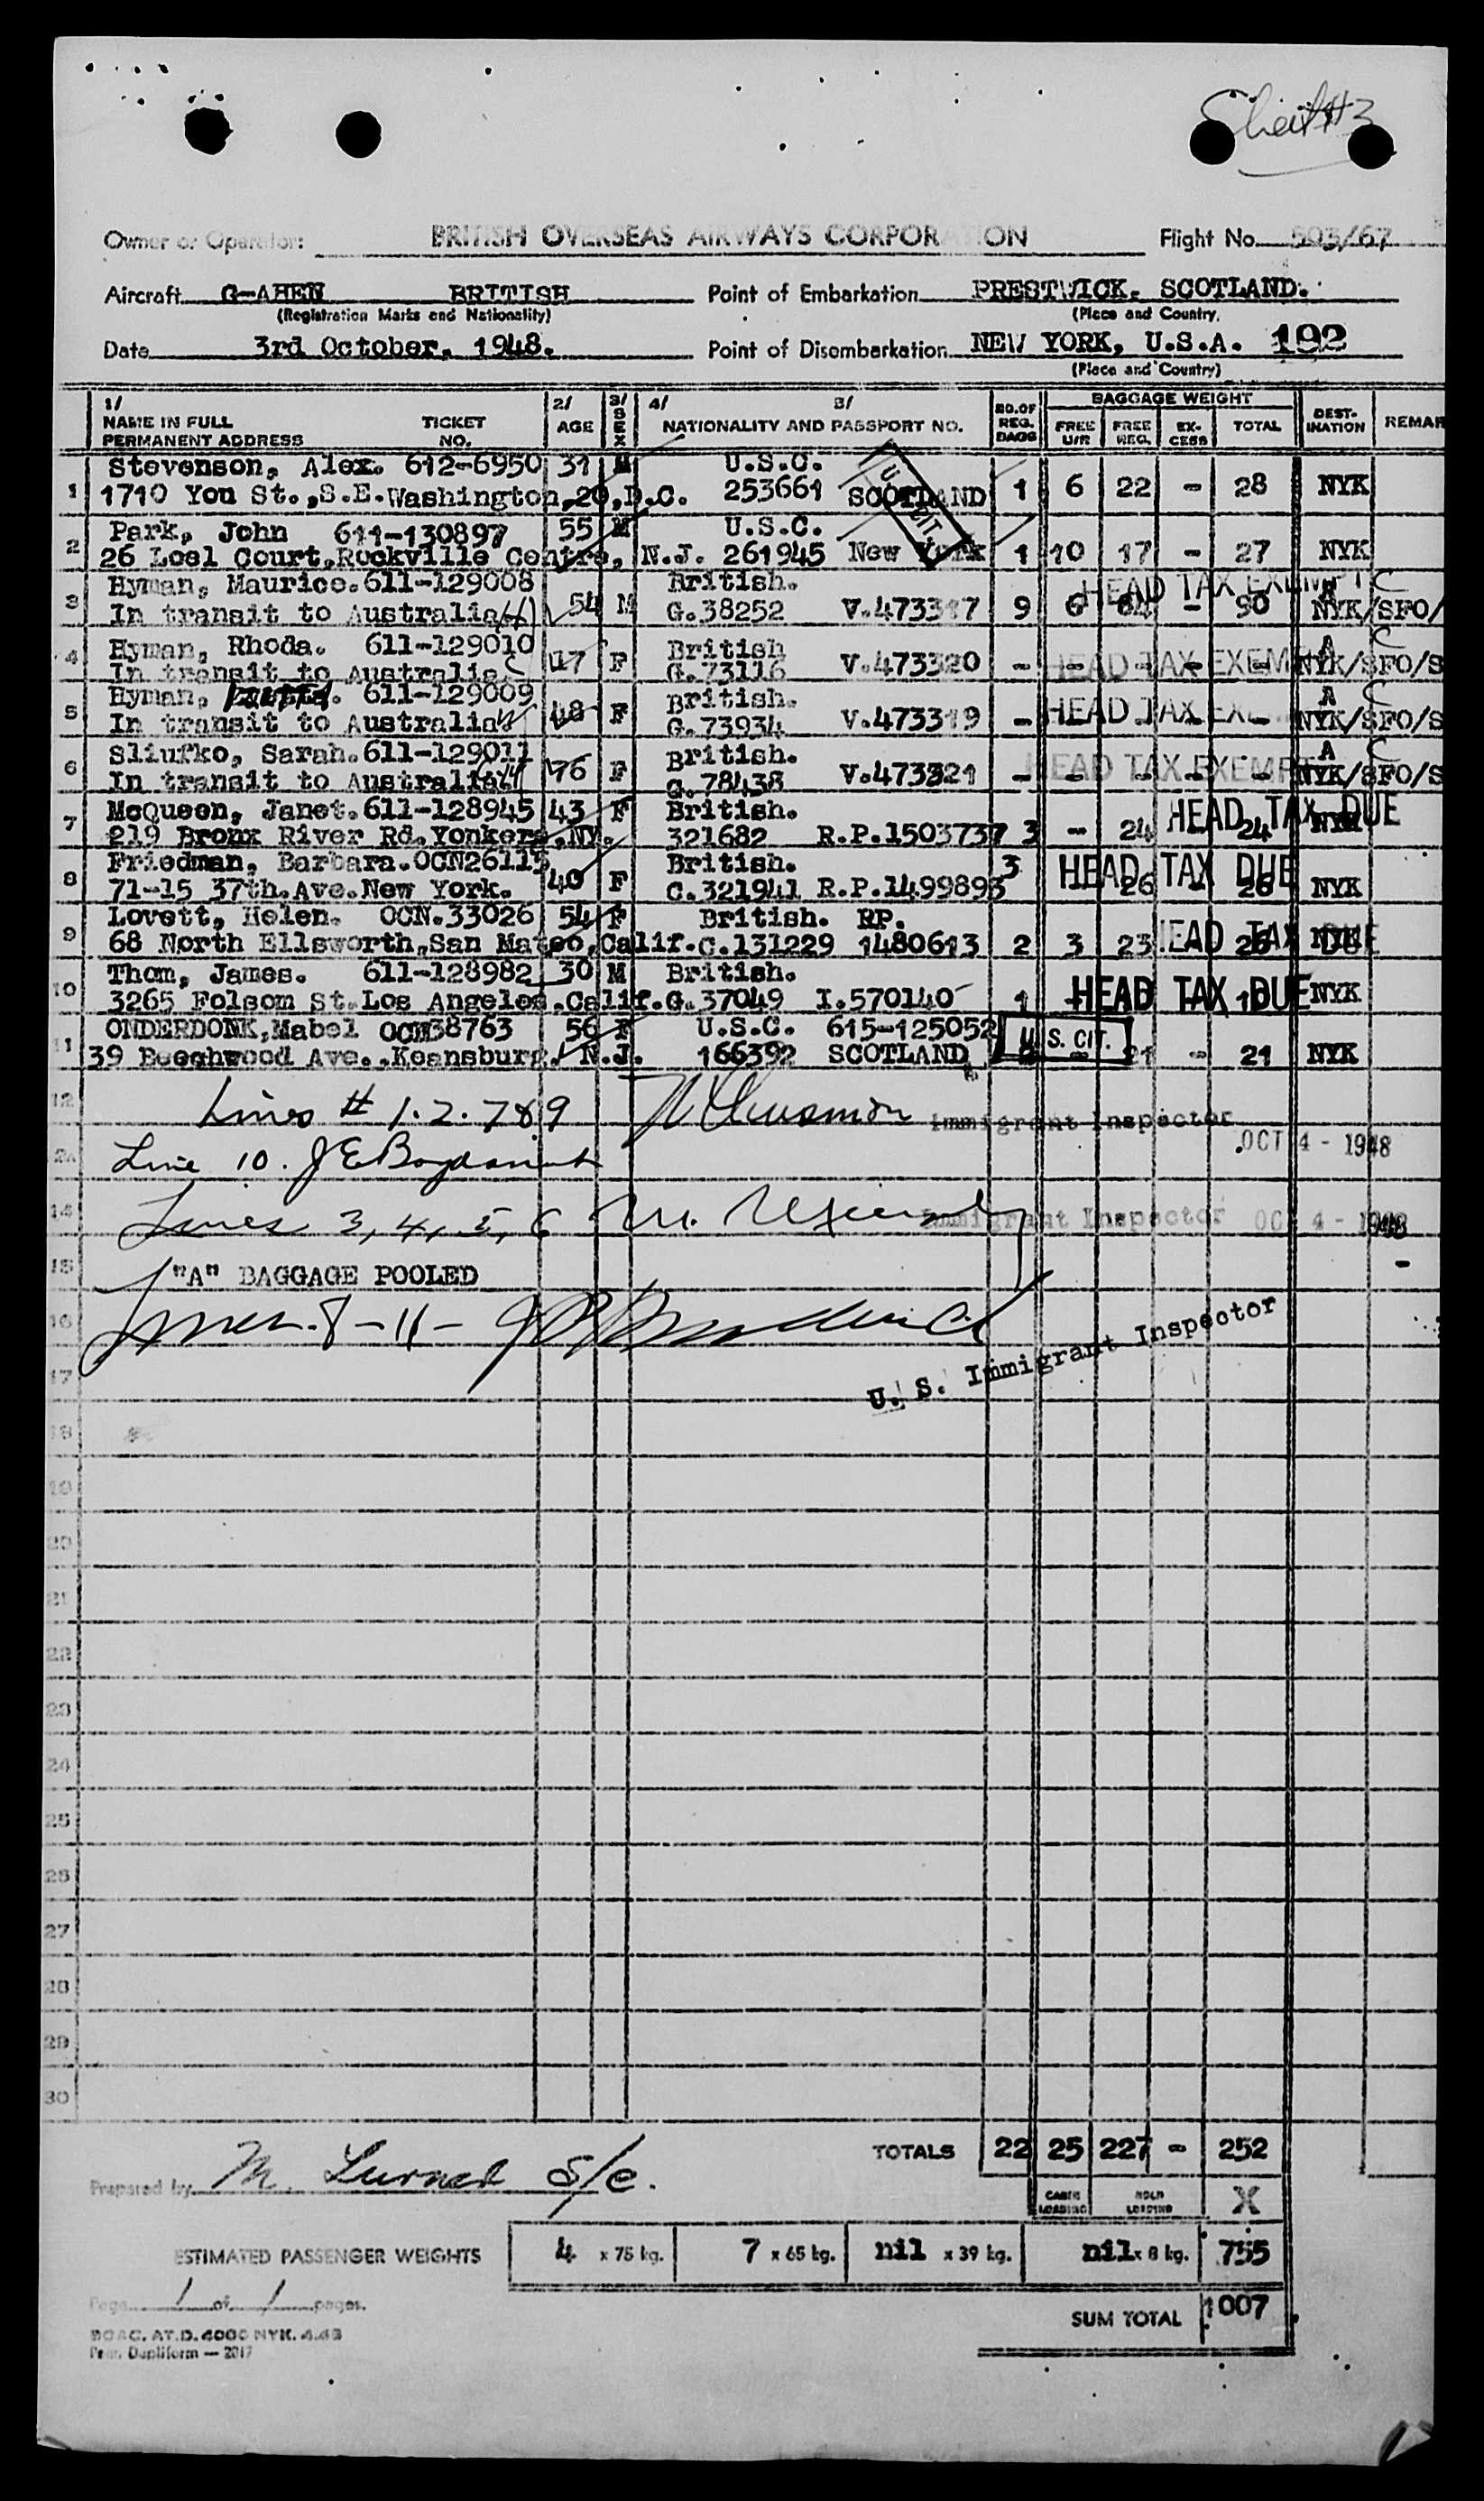 Sheet #3
Owner or Operator: BRITISH OVERSEAS AIRWAYS CORPORATION Flight No. 503/67
Aircraft G-AHEN BRITISH Point of Embarkation PRESTWICK. SCOTLAND.
(Registration Marks and Nationality) (Place and Country)
Date 3rd October, 1948. Point of Disembarkation NEW YORK, U.S.A. 192
(Place and Country)
1/ NAME IN FULL PERMANENT ADDRESS TICKET NO. 2/ AGE 3/ SEX 4/ NATIONALITY AND PASSPORT NO. 5/ NO.OF REG. BAGS BAGGAGE WEIGHT FREE U/R FREE REG. EX-CESS TOTAL DEST-INATION REMAR
1 Stevenson, Alex. 612-6950 31 M U.S.C.
1710 You St.,S.E.Washington,20,D.C. 253661 SCOTLAND 1 6 22 - 28 NYK
2 Park, John 611-130897 55 M U.S.C.
26 Loel Court,Rockville Centre, N.J. 261945 New York 1 10 17 - 27 NYK
3 Hyman, Maurice. 611-129008 54 M British. HEAD TAX EXEMPT A C
In transit to Australia G.38252 V.473317 9 6 84 - 90 NYK/SFO/
4 Hyman, Rhoda. 611-129010 17 F British HEAD TAX EXEMPT A C
In transit to Australia G.73116 V.473320 - - - - - NYK/SFO/S
5 Hyman, 611-129009 48 F British. HEAD TAX EXE A C
In transit to Australia G.73934 V.473319 - - - - - NYK/SFO/S
6 Sliufko, Sarah. 611-129011 76 F British. HEAD TAX EXEMPT A C
In transit to Australia G.78438 V.473321 - - - - - NYK/SFO/S
7 McQueen, Janet. 611-128945 43 F British. HEAD TAX DUE
219 Bronx River Rd.Yonkers.NY. 321682 R.P.1503737 3 - 24 24 NYK
8 Friedman, Barbara. OCN26115 40 F British. 3 HEAD TAX DUE
71-15 37th.Ave.New York. C.321941 R.P.1499893 26 - 26 NYK
9 Lovett, Helen. OCN.33026 54 F British. RP. HEAD TAX DUE
68 North Ellsworth,San Mateo,Calif. C.131229 1480613 2 3 23 26 NYK
10 Thom, James. 611-128982 30 M British. HEAD TAX DUE
3265 Folsom St.Los Angeles.Calif. G.37049 I.570140 1 - 10 NYK
11 ONDERDONK,Mabel OCN38763 56 F U.S.C. 615-125052 U.S. CIT.
39 Beeghwood Ave.,Keansburg. N.J. 166392 SCOTLAND 2 - 21 - 21 NYK
12 Lines # 1.2.7&9 Immigrant Inspector
OCT 4 - 1948
Line 10.
14 Lines 3, 4, 5, 6 Immigrant Inspector OCT 4 - 1948
15 "A" BAGGAGE POOLED
16 Lines-8-11-
U. S. Immigrant Inspector
17
18
19
20
21
22
23
24
25
26
27
28
29
30
TOTALS 22 25 227 - 252
Prepared by M. Turner S/C.
CABIN LOADING HOLD LOADING X
ESTIMATED PASSENGER WEIGHTS 4 x 75 kg. 7 x 65 kg. nil x 39 kg. nil x 8 kg. 755
Page 1 of 1 pages.
SUM TOTAL 1007
BOAC. AT.D. 4000 NYK. 4.48
Pear. Dupliform — 2017